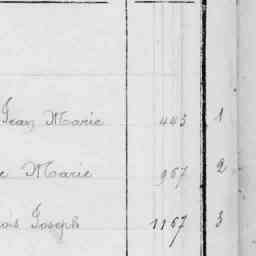 Jean Marie 443 1
e Marie 967 2
ois Joseph 1167 3